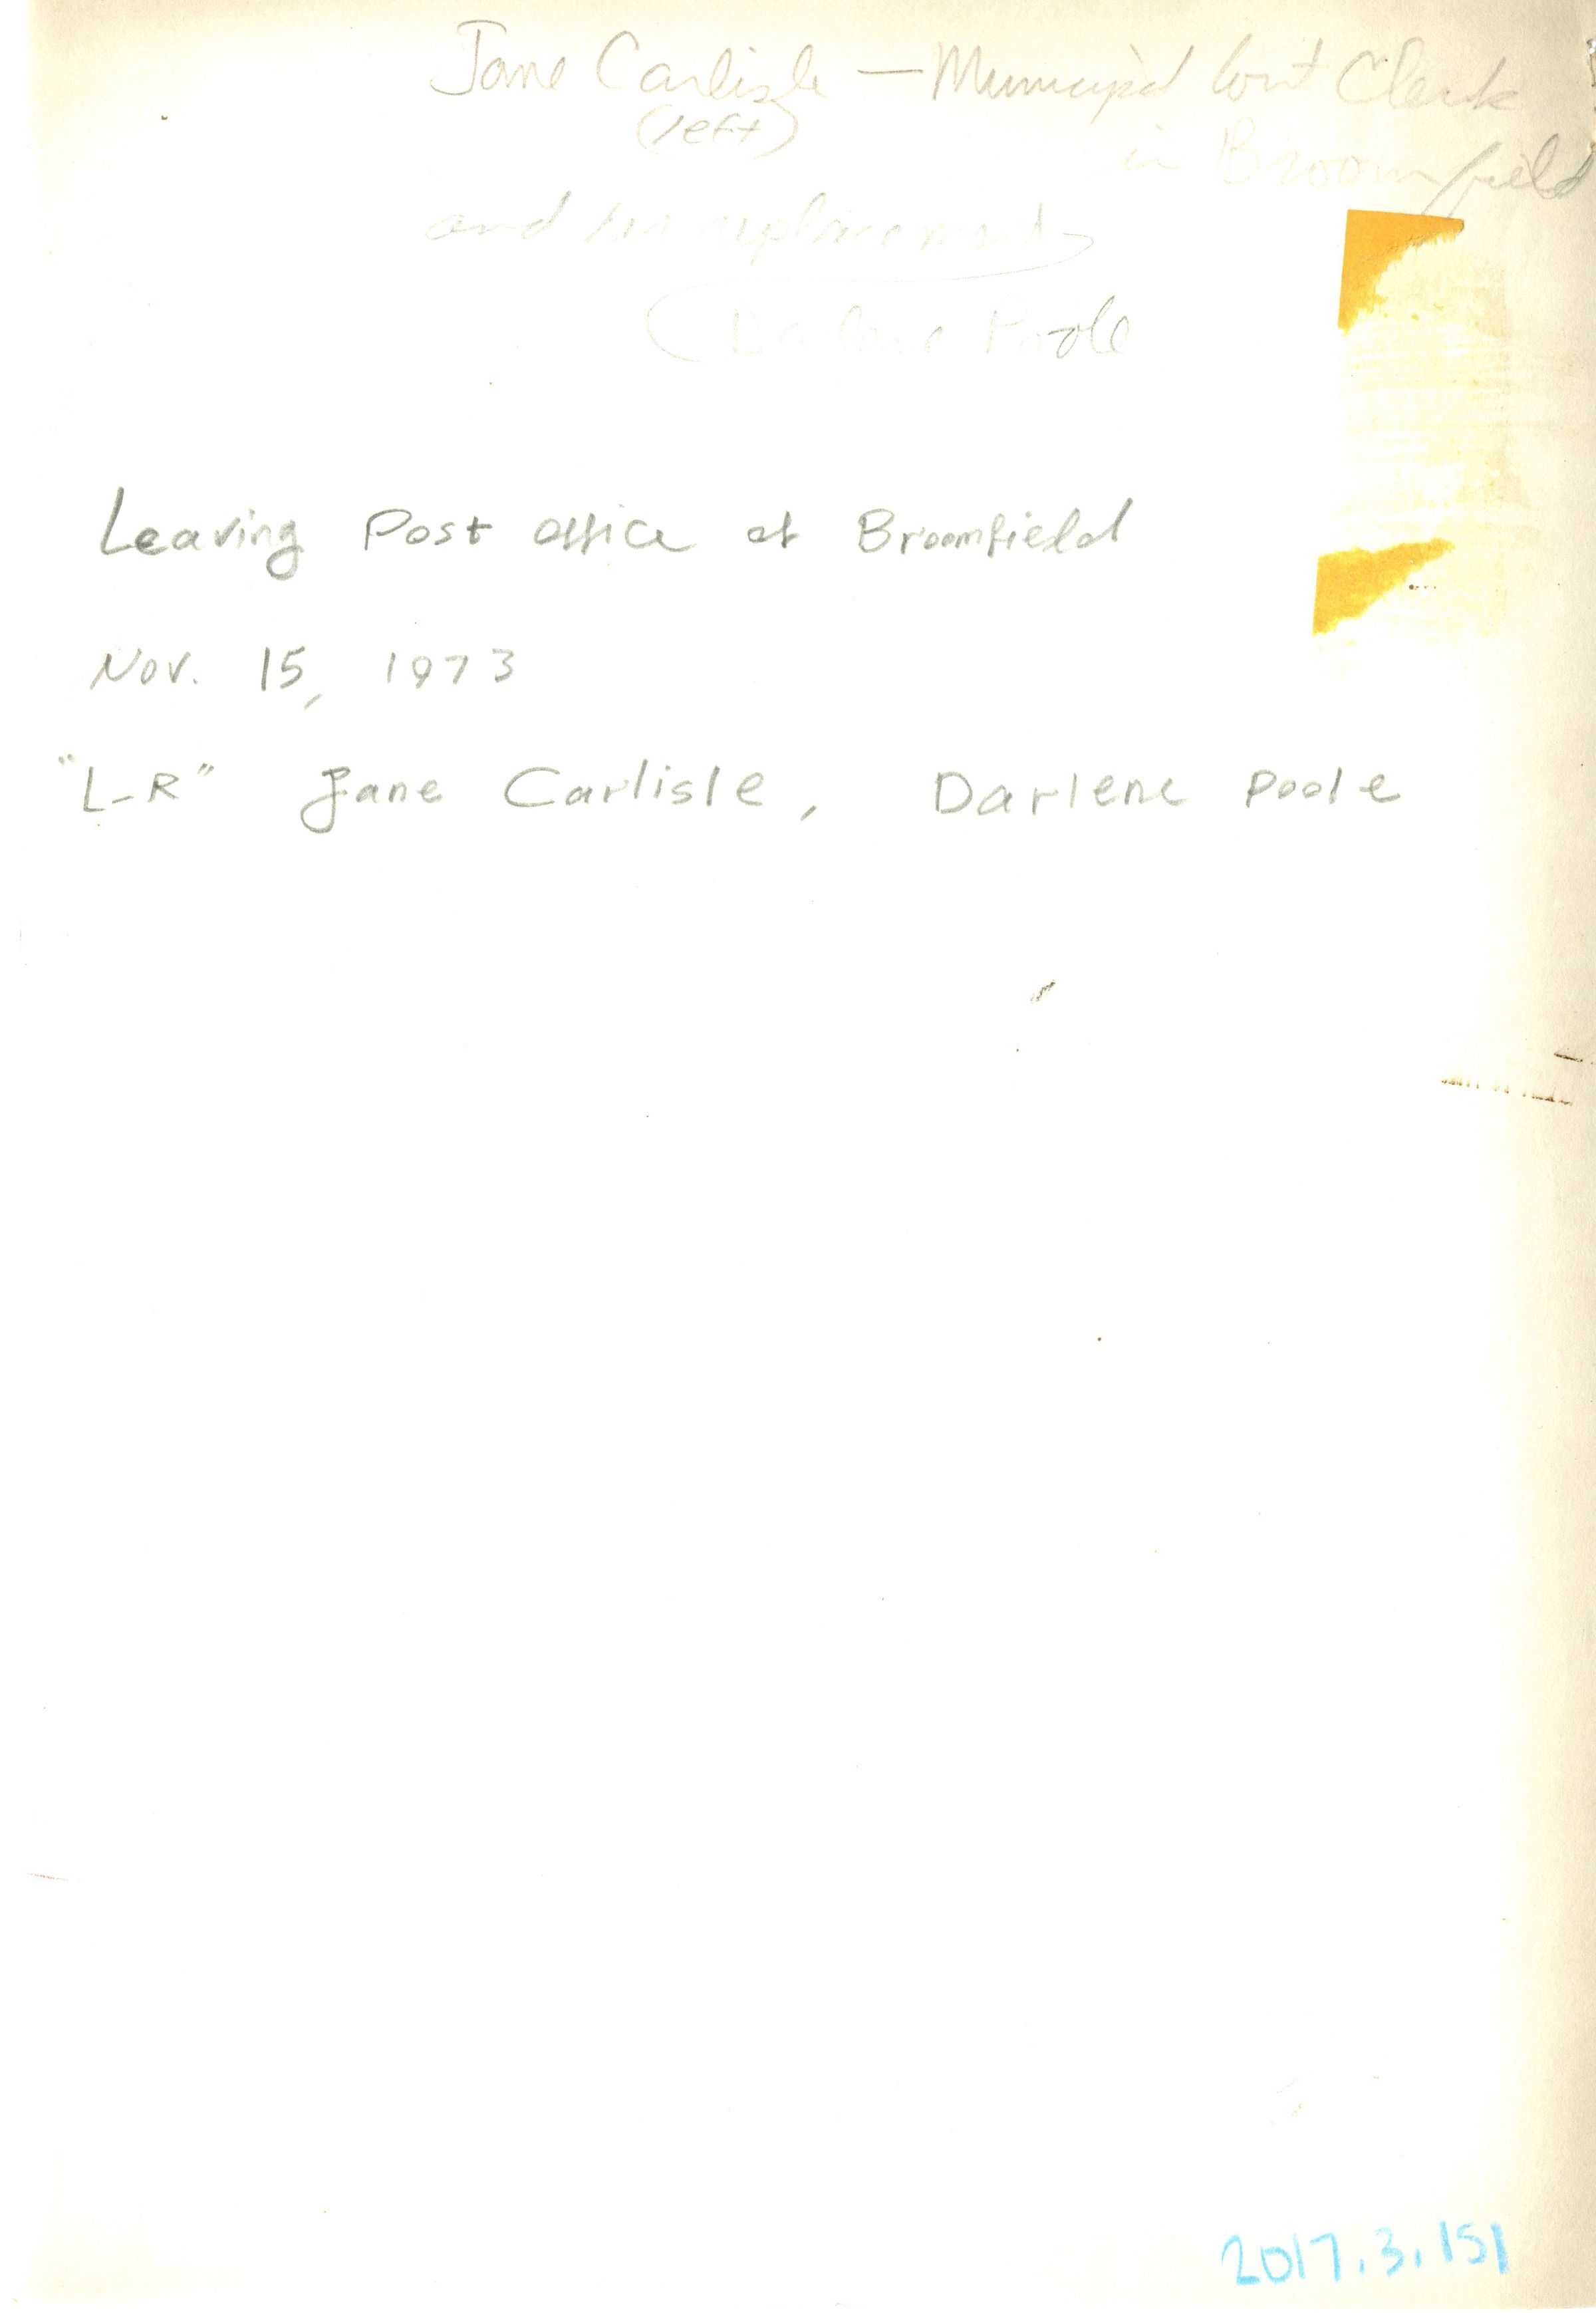 Jane Carlisle — Municipal Court Clerk
(left)
in Broomfield
and her replacement
Darlene Poole
Leaving Post office at Broomfield
Nov. 15, 1973
"L-R" Jane Carlisle, Darlene Poole
2017.3.151